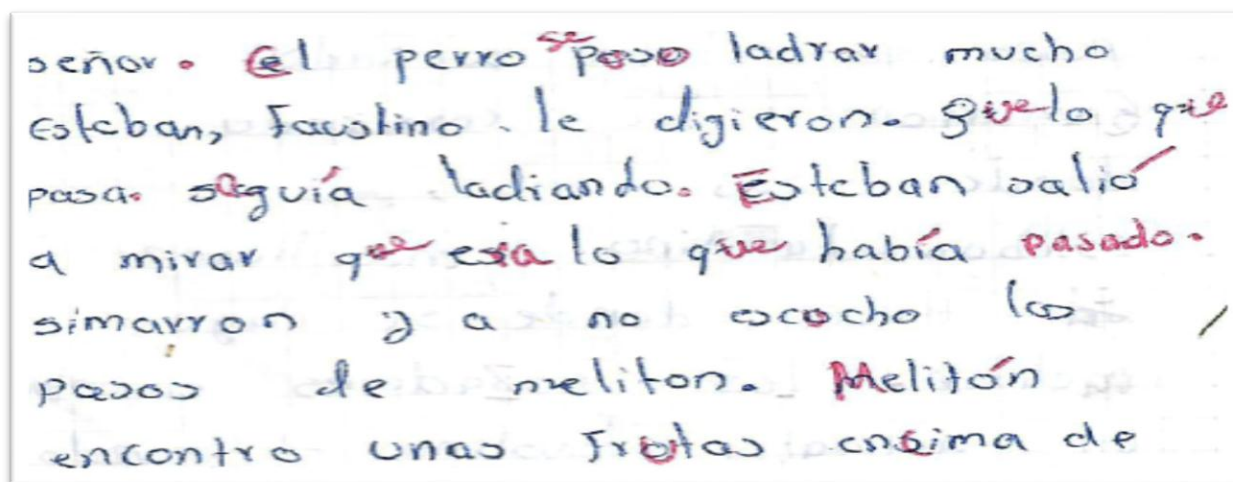 señor. El perro se poso ladrar mucho
Esteban, Faustino. le digieron. que lo que
pasa. seguía ladiando. Esteban salió
a mirar que era lo que había pasado.
simarron y a no escocho los
pasos de meliton. Melitón
encontro unas frotas ensima de